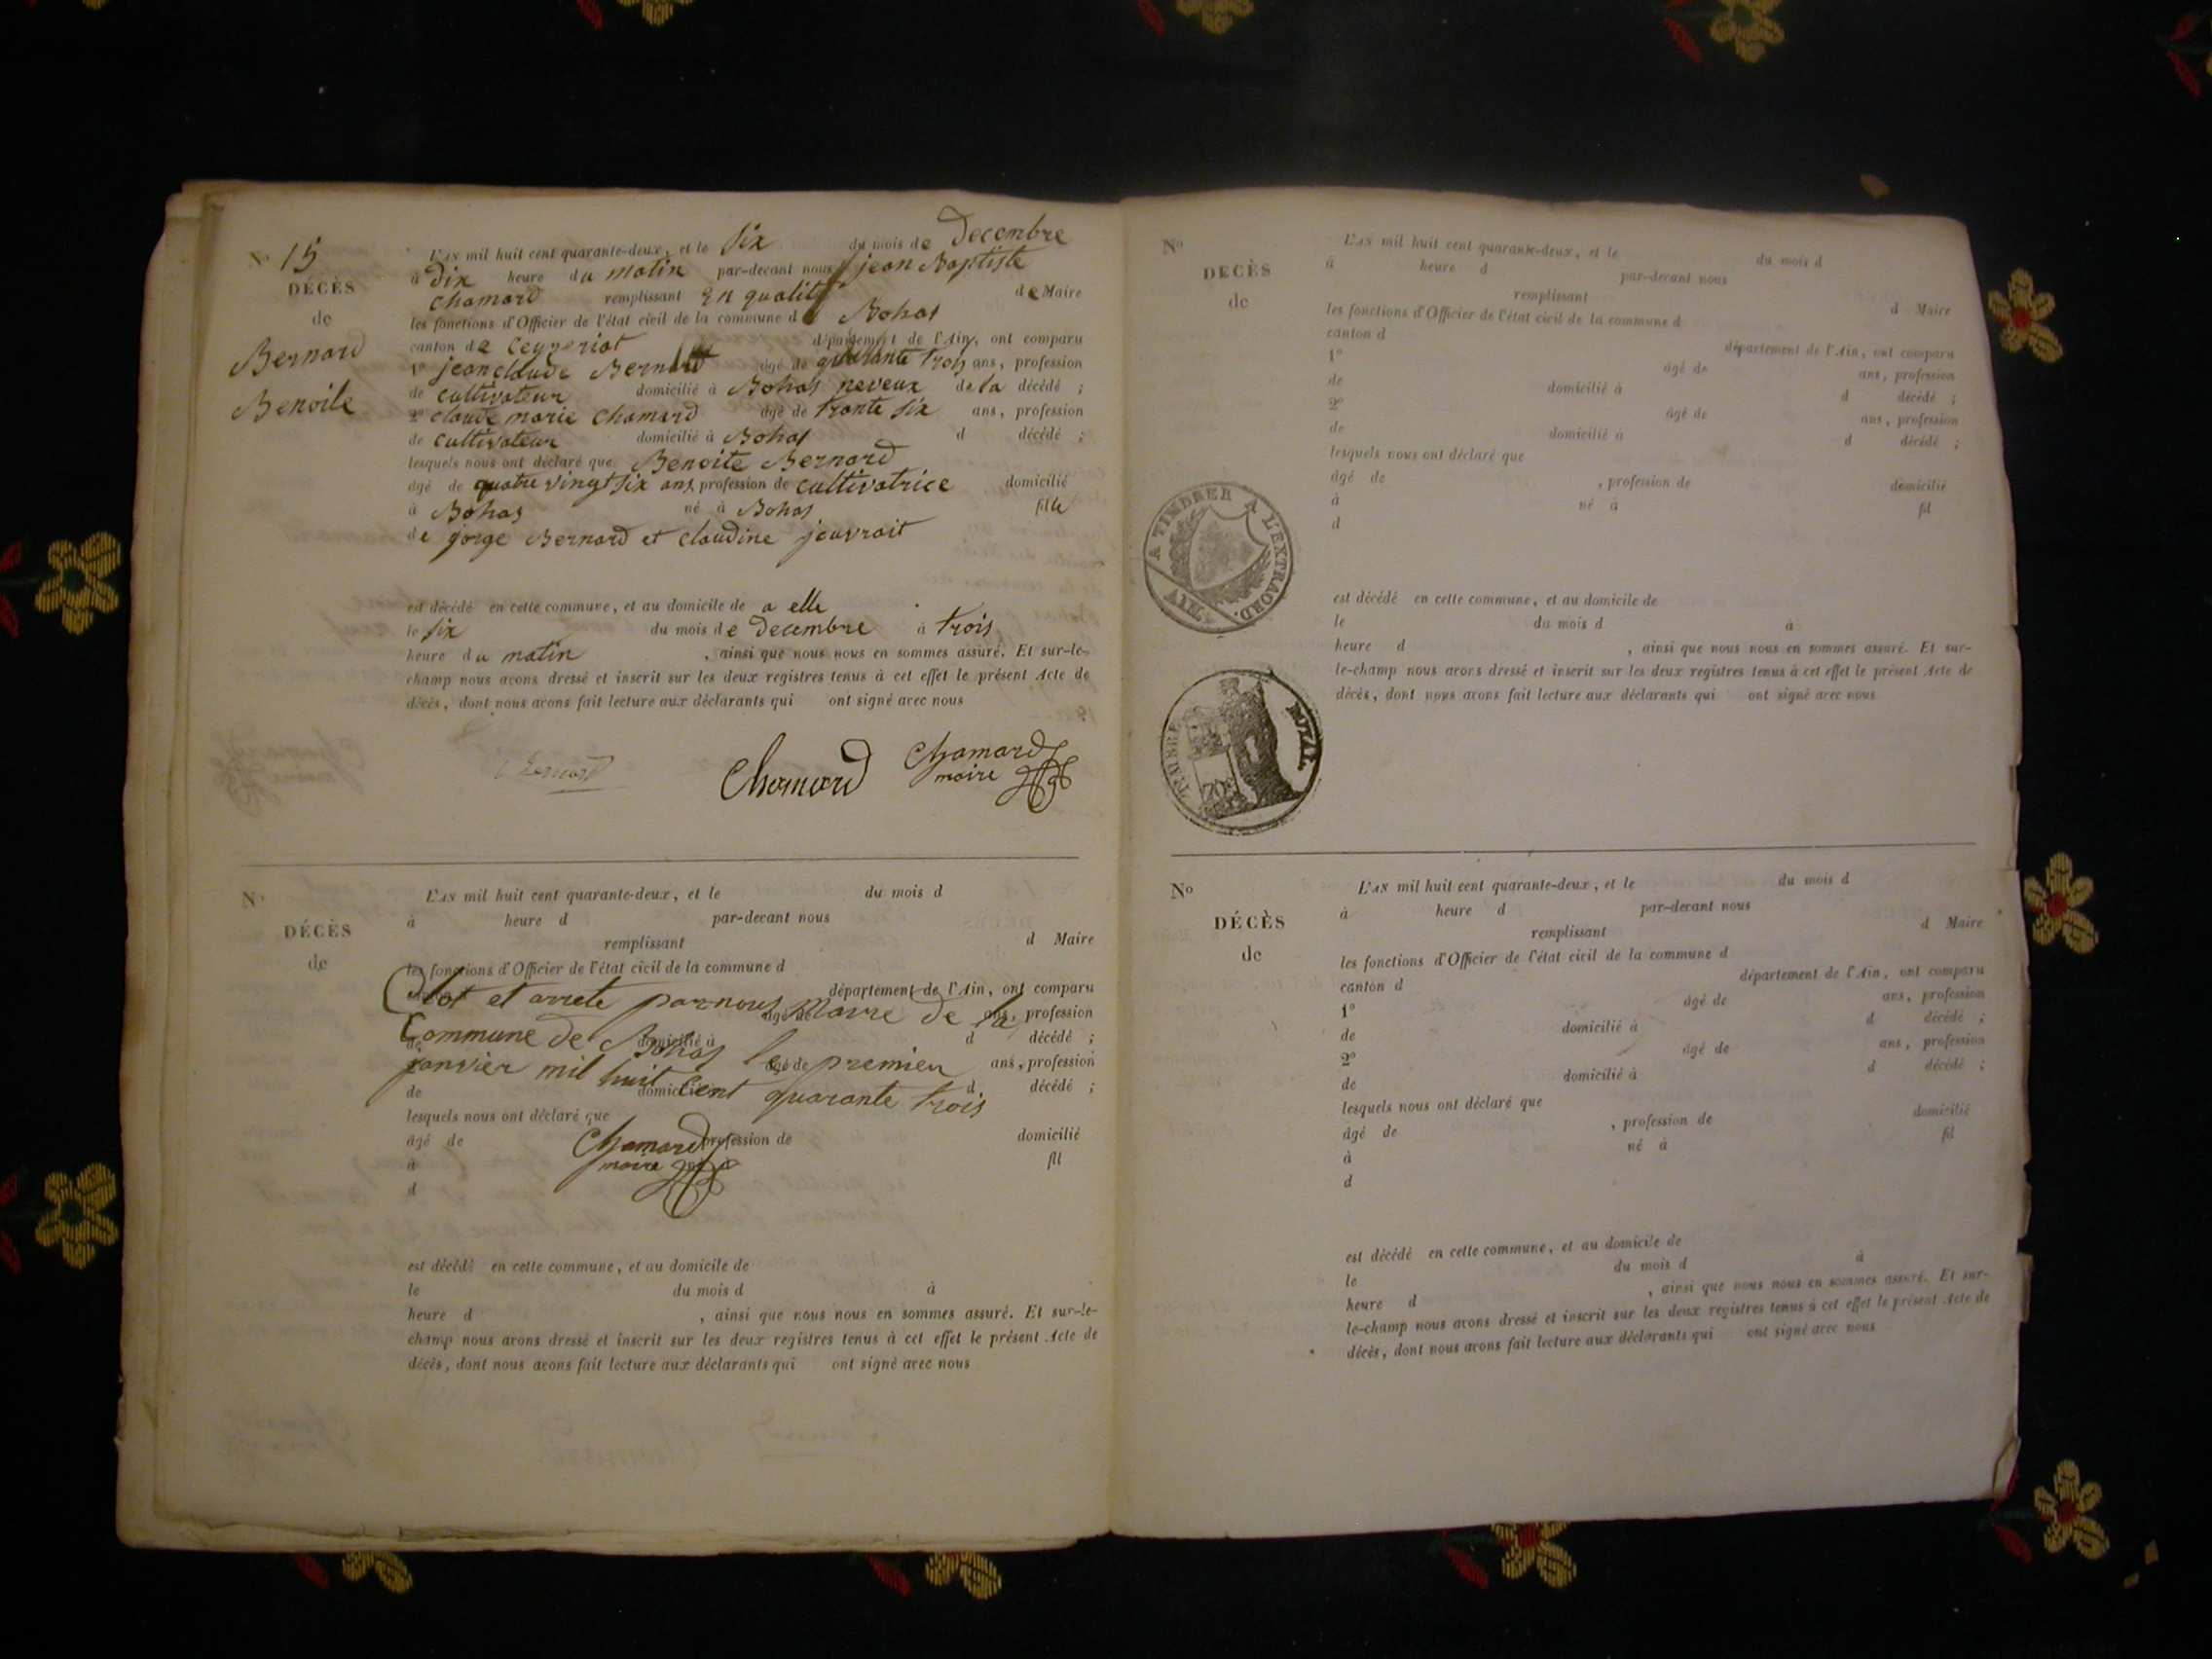 N° 15
DÉCÈS
de
Bernard
Benoite
L'AN mil huit cent quarante-deux, et le six du mois de Decembre
à Dix heure du matin par-devant nous jean Baptiste
chamard remplissant En qualité de Maire
les fonctions d'Officier de l'état civil de la commune de Bohas
canton de Ceyzeriat département de l'Ain, ont comparu
1° jean claude Bernard âgé de quarante trois ans, profession
de cultivateur domicilié à Bohas neveux de la décédé ;
2° claude marie chamard âgé de trante six ans, profession
de cultivateur domicilié à Bohas d décédé ;
lesquels nous ont déclaré que Benoite Bernard
âgé de quatre vingt six ans, profession de cultivatrice domicilié
à Bohas né à Bohas fille
de gorge Bernard et claudine jouvrait
est décédé en cette commune, et au domicile de a elle
le six du mois de Decembre à trois
heure du matin , ainsi que nous nous en sommes assuré. Et sur-le-
champ nous avons dressé et inscrit sur les deux registres tenus à cet effet le présent Acte de
décès, dont nous avons fait lecture aux déclarants qui ont signé avec nous
Bernard Chamard Chamard
maire
N°
DÉCÈS
de
L'AN mil huit cent quarante-deux, et le du mois d
à heure d par-devant nous
remplissant d Maire
les fonctions d'Officier de l'état civil de la commune d
département de l'Ain, ont comparu
Clot et arrete par nous Maire de la
âgé de ans, profession
Commune de Bohas le premier
de domicilié à d décédé ;
âgé de ans, profession
janvier mil huit Cent quarante trois
de domicilié à d décédé ;
lesquels nous ont déclaré que
âgé de profession de domicilié
Chamard
maire
à né à fil
d
est décédé en cette commune, et au domicile de
le du mois d à
heure d , ainsi que nous nous en sommes assuré. Et sur-le-
champ nous avons dressé et inscrit sur les deux registres tenus à cet effet le présent Acte de
décès, dont nous avons fait lecture aux déclarants qui ont signé avec nous
N°
DÉCÈS
de
L'AN mil huit cent quarante-deux, et le du mois d
à heure d par-devant nous
remplissant d Maire
les fonctions d'Officier de l'état civil de la commune d
canton d département de l'Ain, ont comparu
1° âgé de ans, profession
de domicilié à d décédé ;
2° âgé de ans, profession
de domicilié à d décédé ;
lesquels nous ont déclaré que
âgé de , profession de domicilié
à né à fil
d
A TIMBRER A L'EXTRAORD.
AIN
est décédé en cette commune, et au domicile de
le du mois d à
heure d , ainsi que nous nous en sommes assuré. Et sur-
le-champ nous avons dressé et inscrit sur les deux registres tenus à cet effet le présent Acte de
décès, dont nous avons fait lecture aux déclarants qui ont signé avec nous
TIMBRE ROYAL
70
N°
DÉCÈS
de
L'AN mil huit cent quarante-deux, et le du mois d
à heure d par-devant nous
remplissant d Maire
les fonctions d'Officier de l'état civil de la commune d
canton d département de l'Ain, ont comparu
1° âgé de ans, profession
de domicilié à d décédé ;
2° âgé de ans, profession
de domicilié à d décédé ;
lesquels nous ont déclaré que
âgé de , profession de domicilié
à né à fil
d
est décédé en cette commune, et au domicile de
le du mois d à
heure d , ainsi que nous nous en sommes assuré. Et sur-
le-champ nous avons dressé et inscrit sur les deux registres tenus à cet effet le présent Acte de
décès, dont nous avons fait lecture aux déclarants qui ont signé avec nous